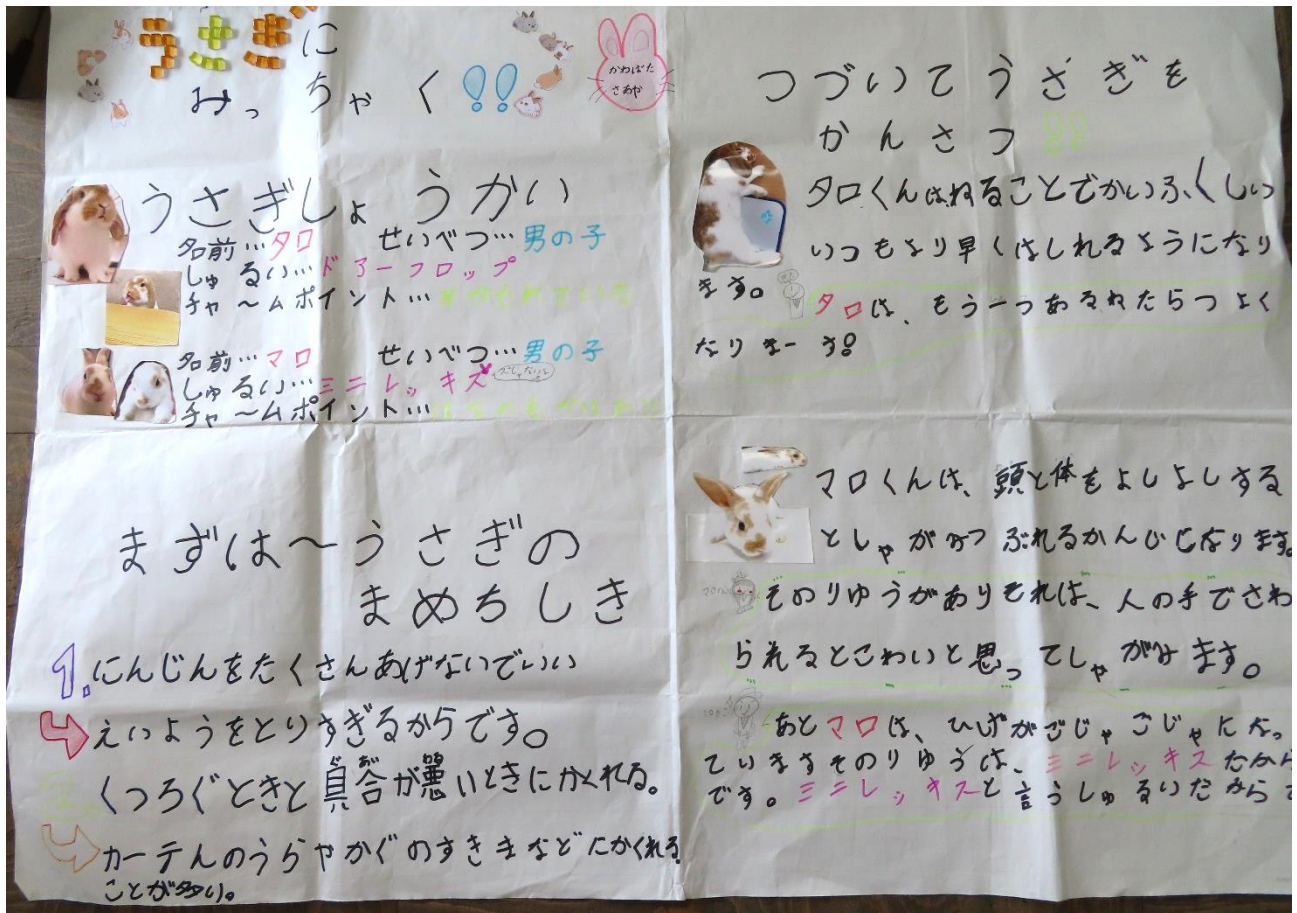 うさぎに
みっちゃく!!
かわばた
さあや
うさぎしょうかい
名前…タロ せいべつ…男の子
しゅるい…ドアーフロップ
チャームポイント…
名前…マロ せいべつ…男の子
しゅるい…ミニレッキス
チャームポイント…
まずは〜うさぎの
まめちしき
1.にんじんをたくさんあげないでいい
えいようをとりすぎるからです。
くつろぐときと具合が悪いときにかくれる。
カーテんのうらやかぐのすきまなどにかくれる
ことが多い。
つづいてうさぎを
かんさつ!!
タロくんはねることでかいふくしいい
いつもより早くはしれるようになり
ます。
タロは、もう一つあるねたらつよく
なりまーす!
マロくんは、頭と体をよしよしする
としゃがみつぶれるかんじになります。
そのりゆうがありそれは、人の手でさわ
られるとこわいと思ってしゃがみます。
あとマロは、ひげがごじゃごじゃになっ
ていますそのりゆうは、ミニレッキスだから
です。ミニレッキスと言うしゅるいだから